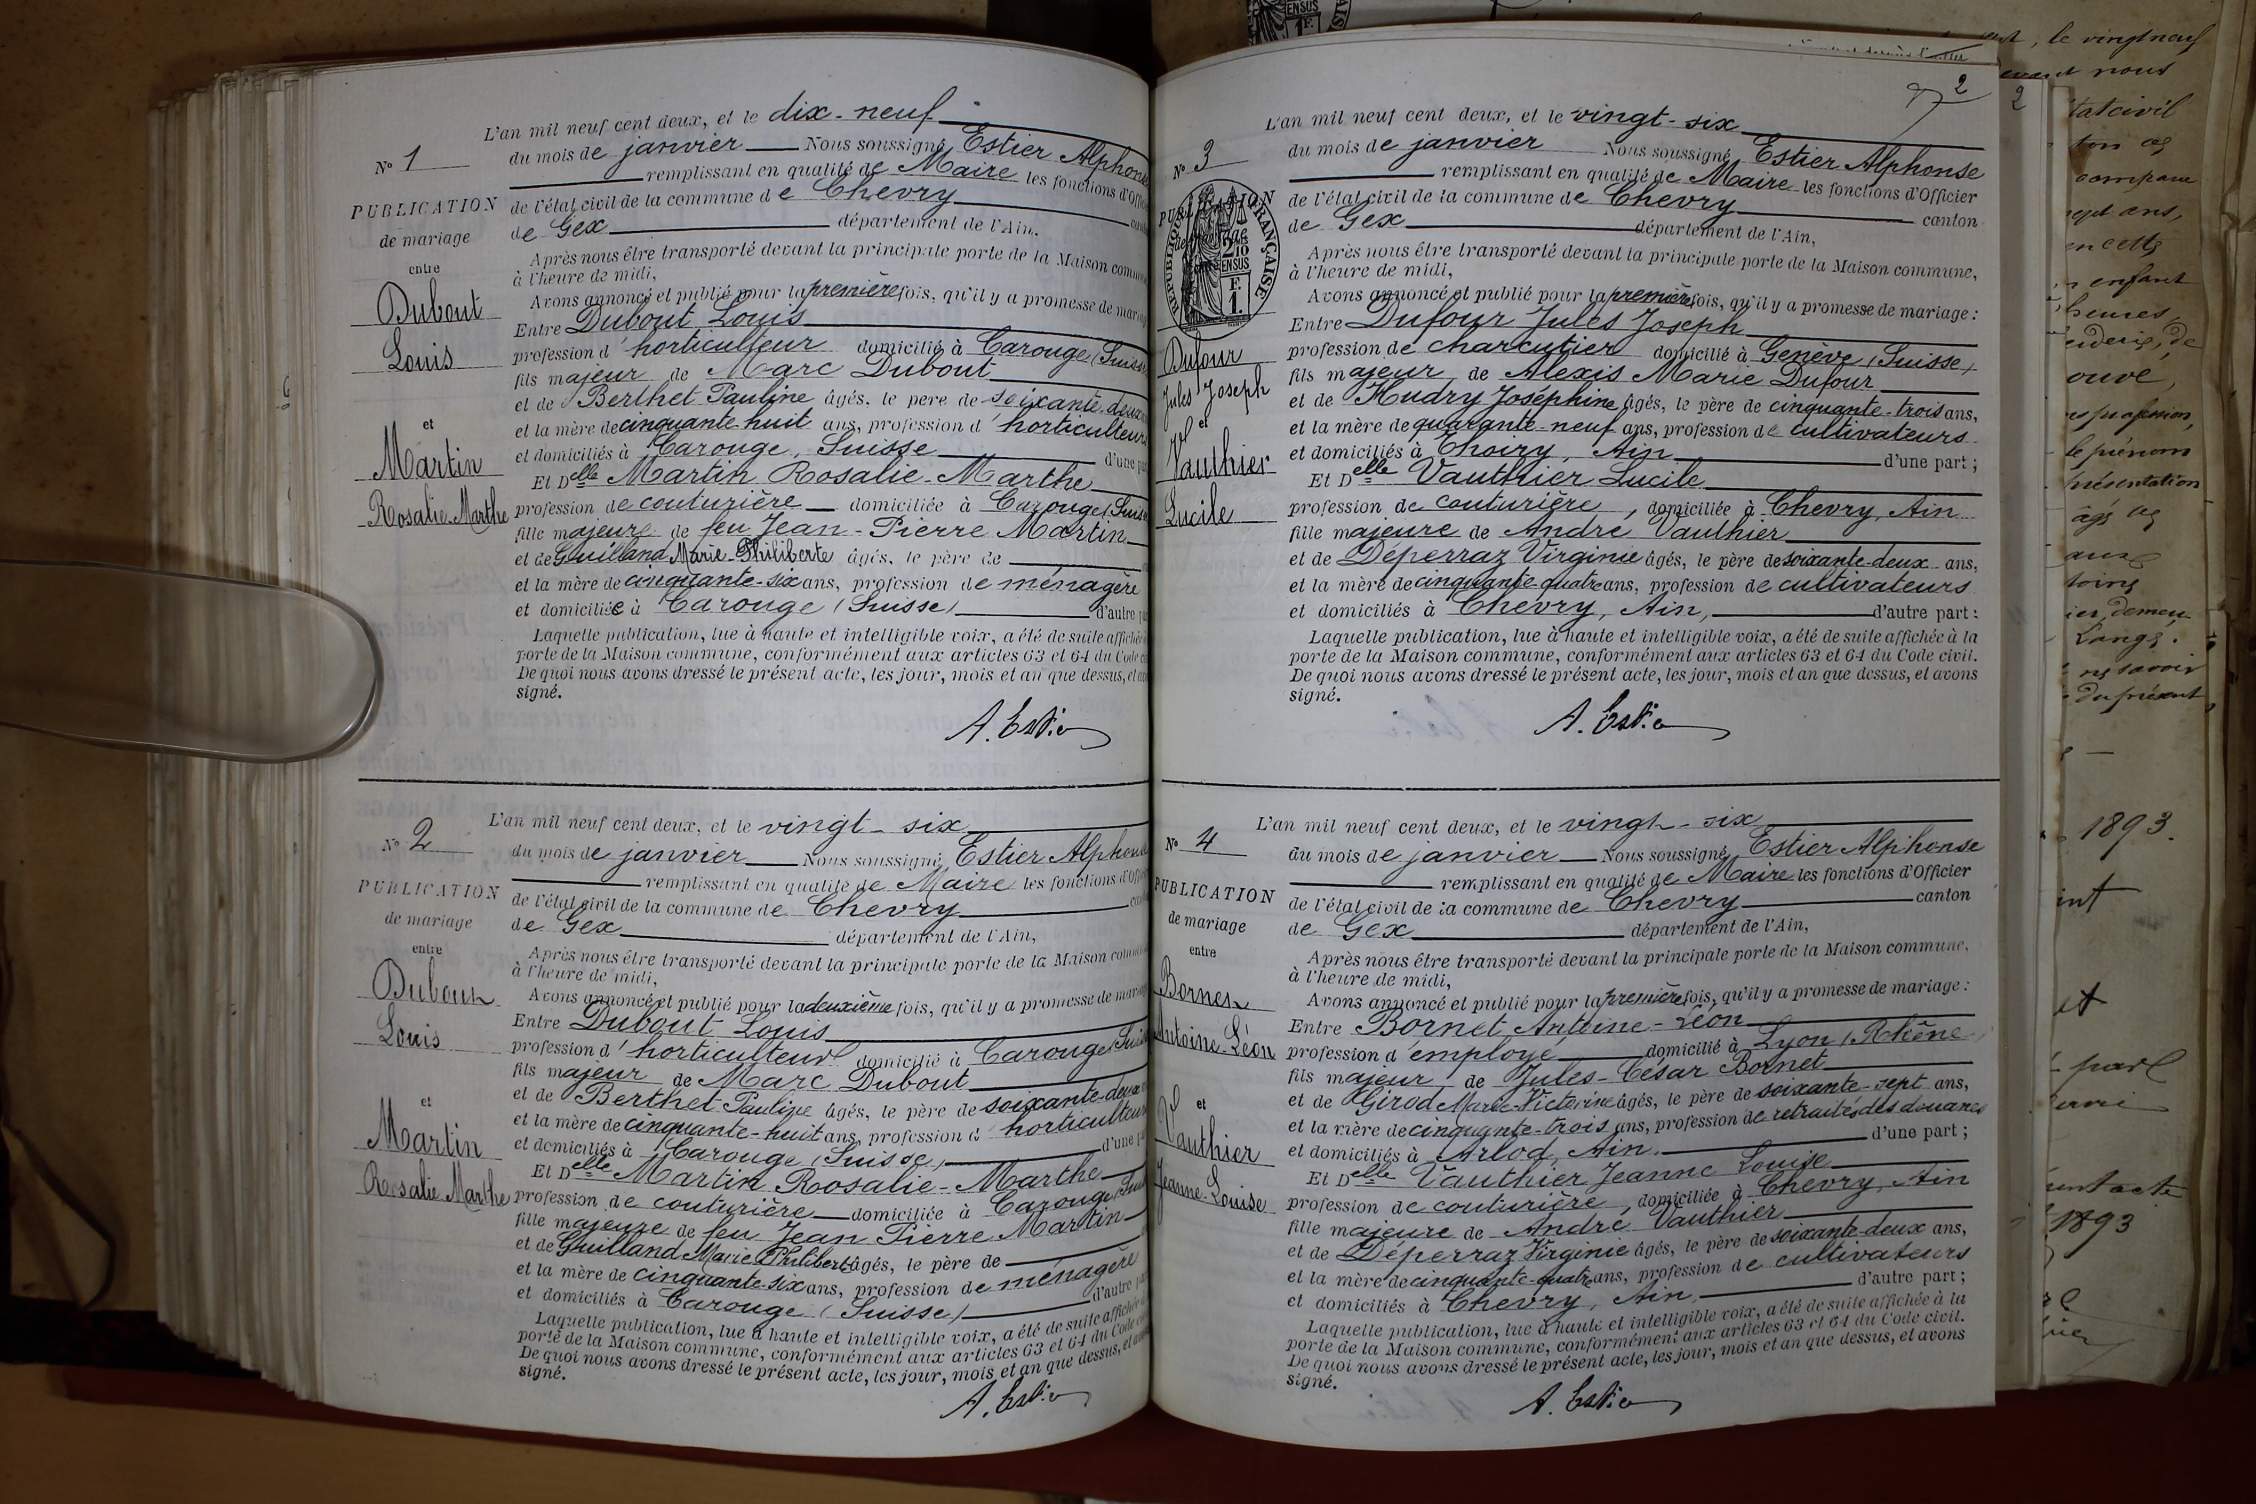 L'an mil neuf cent deux, et le dix-neuf
N° 1
du mois de janvier Nous soussigné, Estier Alphonse
remplissant en qualité de Maire les fonctions d'Offi
PUBLICATION
de mariage
entre
Dubout
Louis
et
Martin
Rosalie Marthe
de l'état civil de la commune de Chevry
de Gex département de l'Ain.
Après nous être transporté devant la principale porte de la Maison commu
à l'heure de midi,
Avons annoncé et publié pour la première fois, qu'il y a promesse de maria
Entre Dubout Louis
profession d'horticulteur domicilié à Carouge (Suisse
fils majeur de Marc Dubout
et de Berthet Pauline âgés, le père de soixante-deux
et la mère de cinquante-huit ans, profession d'horticulteurs
et domiciliés à Carouge, Suisse d'une pa
Et Delle Martin Rosalie-Marthe
profession de couturière domiciliée à Carouge (Suisse
fille majeure de feu Jean-Pierre Martin
et de Guilland Marie-Philiberte âgés, le père de
et la mère de cinquante-six ans, profession de ménagère
et domiciliée à Carouge (Suisse) d'autre pa
Laquelle publication, lue à haute et intelligible voix, a été de suite affichée
porte de la Maison commune, conformément aux articles 63 et 64 du Code c
De quoi nous avons dressé le présent acte, les jour, mois et an que dessus, et av
signé.
A. Estier
L'an mil neuf cent deux, et le vingt-six
N° 2
du mois de janvier Nous soussigné, Estier Alphonse
remplissant en qualité de Maire les fonctions d'Offi
PUBLICATION
de mariage
entre
Dubout
Louis
et
Martin
Rosalie Marthe
de l'état civil de la commune de Chevry
de Gex département de l'Ain,
Après nous être transporté devant la principale porte de la Maison commu
à l'heure de midi,
Avons annoncé et publié pour la deuxième fois, qu'il y a promesse de maria
Entre Dubout Louis
profession d'horticulteur domicilié à Carouge (Suis
fils majeur de Marc Dubout
et de Berthet Pauline âgés, le père de soixante-deux
et la mère de cinquante-huit ans, profession d'horticulteurs
et domiciliés à Carouge (Suisse) d'une p
Et Delle Martin Rosalie-Marthe
profession de couturière domiciliée à Carouge (Suis
fille majeure de feu Jean Pierre Martin
et de Guilland Marie Philiberte âgés, le père de
et la mère de cinquante-six ans, profession de ménagère
et domiciliés à Carouge (Suisse) d'autre par
Laquelle publication, lue à haute et intelligible voix, a été de suite affichée
porte de la Maison commune, conformément aux articles 63 et 64 du Code c
De quoi nous avons dressé le présent acte, les jour, mois et an que dessus, et av
signé.
A. Estier
2
2
L'an mil neuf cent deux, et le vingt-six
N° 3
du mois de janvier Nous soussigné, Estier Alphonse
remplissant en qualité de Maire les fonctions d'Officier
PUBLICATION
de mariage
RÉPUBLIQUE FRANÇAISE
2/10 EN SUS
F.
1.
Dufour
Jules Joseph
et
Vauthier
Lucile
de l'état civil de la commune de Chevry canton
de Gex département de l'Ain,
Après nous être transporté devant la principale porte de la Maison commune,
à l'heure de midi,
Avons annoncé et publié pour la première fois, qu'il y a promesse de mariage :
Entre Dufour Jules Joseph
profession de charcutier domicilié à Genève (Suisse)
fils majeur de Alexis Marie Dufour
et de Hudry Joséphine âgés, le père de cinquante-trois ans,
et la mère de quarante-neuf ans, profession de cultivateurs
et domiciliés à Thoiry, Ain d'une part ;
Et Delle Vauthier Lucile
profession de couturière, domiciliée à Chevry, Ain
fille majeure de André Vauthier
et de Déperraz Virginie âgés, le père de soixante-deux ans,
et la mère de cinquante-quatre ans, profession de cultivateurs
et domiciliés à Chevry, Ain, d'autre part :
Laquelle publication, lue à haute et intelligible voix, a été de suite affichée à la
porte de la Maison commune, conformément aux articles 63 et 64 du Code civil.
De quoi nous avons dressé le présent acte, les jour, mois et an que dessus, et avons
signé.
A. Estier
L'an mil neuf cent deux, et le vingt-six
N° 4
du mois de janvier Nous soussigné, Estier Alphonse
remplissant en qualité de Maire les fonctions d'Officier
PUBLICATION
de mariage
entre
Bornet
Antoine-Léon
et
Vauthier
Jeanne-Louise
de l'état civil de la commune de Chevry canton
de Gex département de l'Ain,
Après nous être transporté devant la principale porte de la Maison commune,
à l'heure de midi,
Avons annoncé et publié pour la première fois, qu'il y a promesse de mariage :
Entre Bornet Antoine-Léon
profession d'employé domicilié à Lyon (Rhône)
fils majeur de Jules-César Bornet
et de Girod Marie-Victorine âgés, le père de soixante-sept ans,
et la mère de cinquante-trois ans, profession de retraités des douanes
et domiciliés à Arlod, Ain. d'une part ;
Et Delle Vauthier Jeanne Louise
profession de couturière, domiciliée à Chevry, Ain
fille majeure de André Vauthier
et de Déperraz Virginie âgés, le père de soixante-deux ans,
et la mère de cinquante-quatre ans, profession de cultivateurs
et domiciliés à Chevry, Ain d'autre part ;
Laquelle publication, lue à haute et intelligible voix, a été de suite affichée à la
porte de la Maison commune, conformément aux articles 63 et 64 du Code civil.
De quoi nous avons dressé le présent acte, les jour, mois et an que dessus, et avons
signé.
A. Estier
le vingt neuf
nous
tat civil
compare
ans,
en cette
enfant
heures,
ouve,
profession,
le prénom
présentation
âgé de
Lange.
savoir
du présent
1893.
et
acte
1893